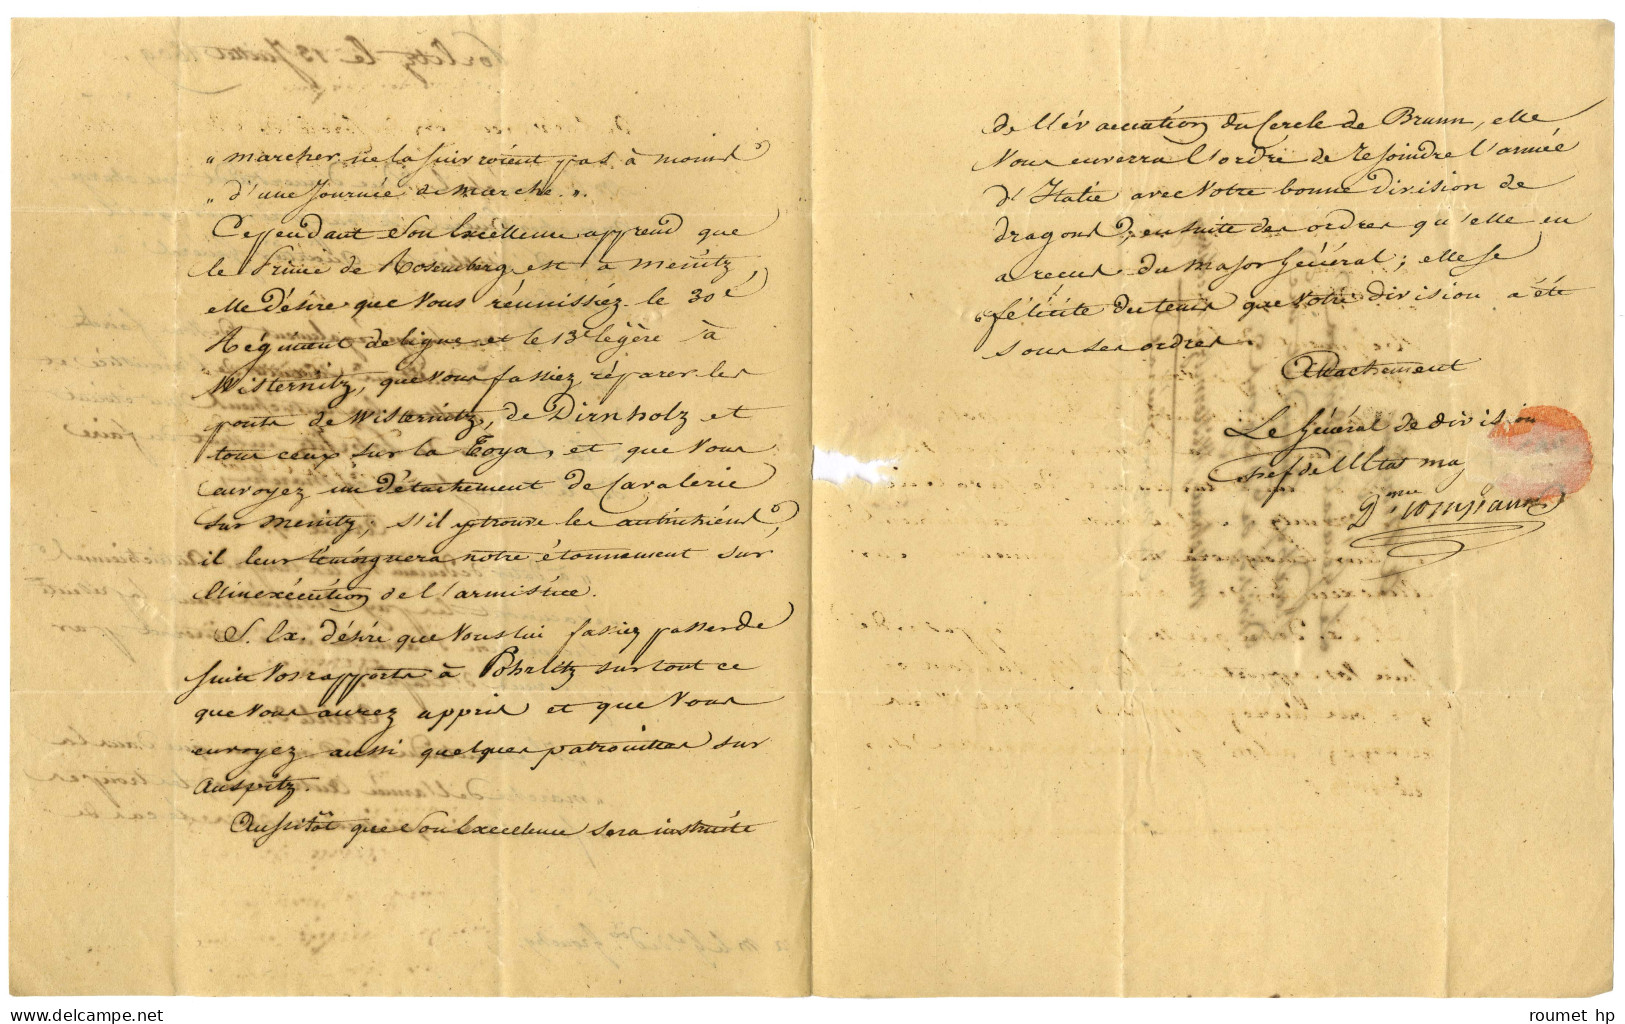 " marcher ne la suivroient pas à moins
" d'une Journée de marche ".
Cependant Son Excellence apprend que
le Prince de Rosemberg est à menitz,
elle désire que vous réunissiez le 30e
Régiment de ligne et le 13e légère à
Wisternitz, que vous fassiez réparer les
ponts de Wisternitz, de Dirnholz et
tous ceux sur la Toya, et que vous
envoyez un détachement de Cavalerie
sur menitz; s'il y trouve les autrichiens,
il leur témoignera notre étonnement sur
l'inexécution de l'armistice.
S. Ex. désire que vous lui fassiez passer de
suite vos rapports à Pohrlitz sur tout ce
que vous aurez appris et que vous
envoyez aussi quelques patrouilles sur
Auspitz.
Aussitôt que Son Excellence sera instruite
de l'évacuation du Cercle de Brunn, elle
vous enverra l'ordre de rejoindre l'armée
d'Italie avec votre bonne division de
dragons, ensuite des ordres qu'elle en
a recus du major Général; elle se
félicite du tems que votre division a été
sous ses ordres.
Attachement
Le Général de division
chef de l'Etat maj
D. Compans